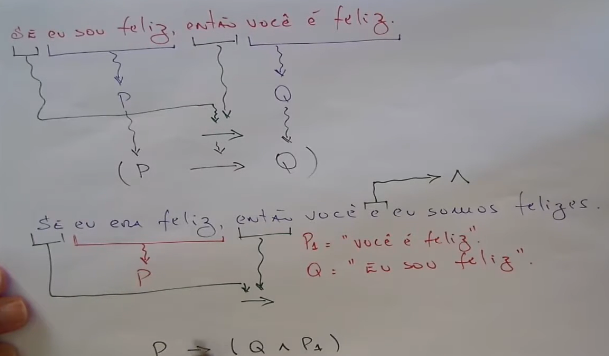 SE eu sou feliz, então você é feliz.
P Q
→
(P → Q)
∧
SE eu era feliz, então você e eu somos felizes.
P₁ = "você é feliz".
P
Q = "Eu sou feliz".
→
P → (Q ∧ P₁)